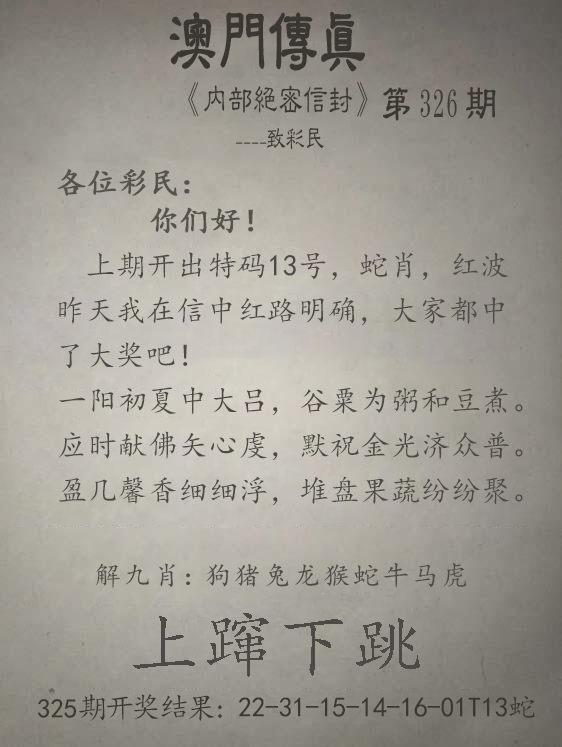 澳門傳眞
《内部絕密信封》第326期
----致彩民
各位彩民：
你们好！
上期开出特码13号，蛇肖，红波
昨天我在信中红路明确，大家都中
了大奖吧！
一阳初夏中大吕，谷粟为粥和豆煮。
应时献佛矢心虔，默祝金光济众普。
盈几馨香细细浮，堆盘果蔬纷纷聚。
解九肖：狗猪兔龙猴蛇牛马虎
上蹿下跳
325期开奖结果：22-31-15-14-16-01T13蛇